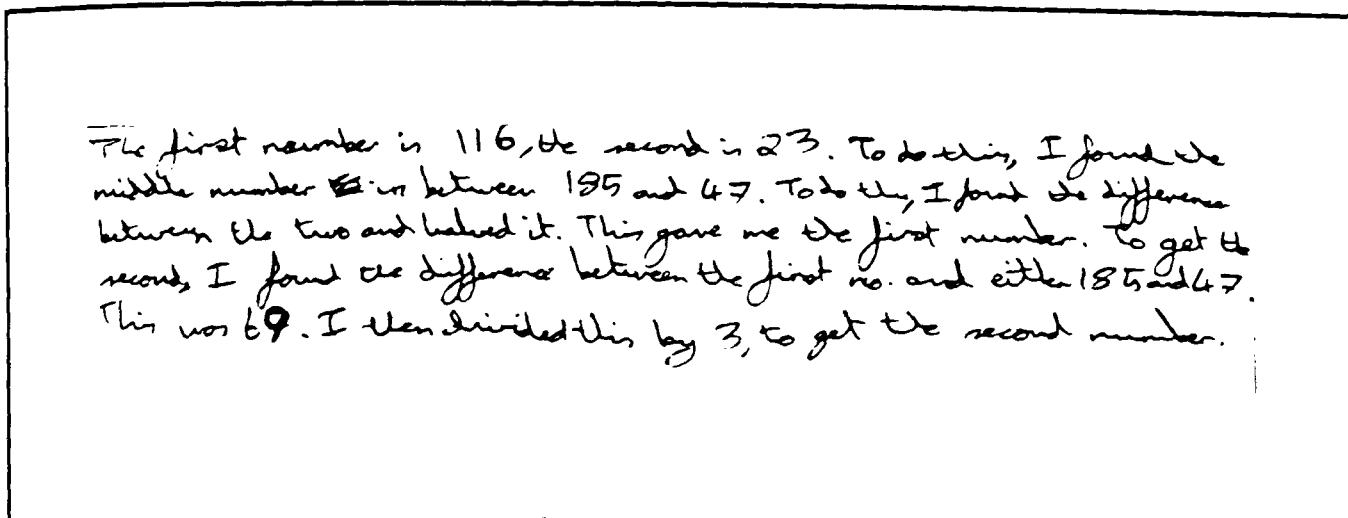 The first number is 116, the second is 23. To do this, I found the
middle number in between 185 and 47. To do this, I found the difference
between the two and halved it. This gave me the first number. To get the
second, I found the difference between the first no. and either 185 and 47.
This was 69. I then divided this by 3, to get the second number.